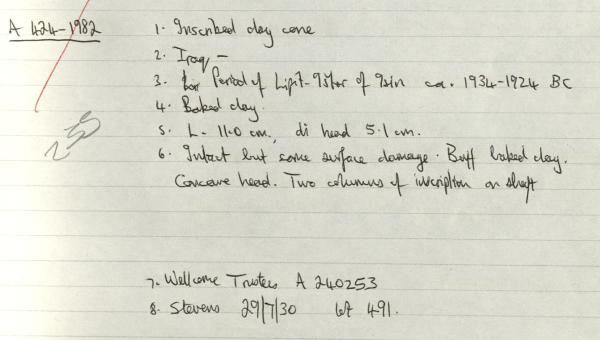 A 424-1982
1. Inscribed clay cone
2. Iraq -
3. Period of Lipit-Ishtar of Isin ca. 1934-1924 BC
4. Baked clay.
5. L- 11.0 cm, di head 5.1 cm.
6. Intact but some surface damage. Buff baked clay.
Concave head. Two columns of inscription on shaft
7. Wellcome Trustees A 240253
8. Stevens 29/7/30 lot 491.